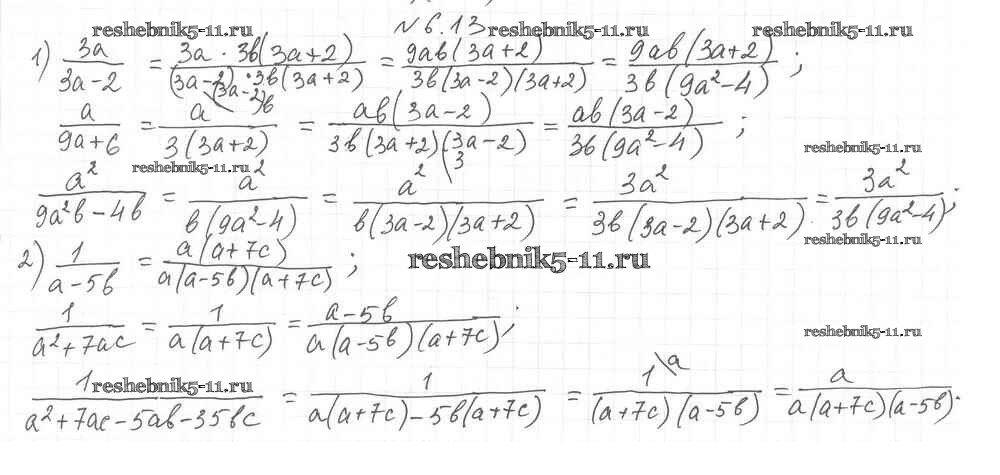 reshebnik5-11.ru N 6.13 reshebnik5-11.ru reshebnik5-11.ru
1) 3a/(3a-2) = (3a · 3b(3a+2))/((3a-2) · 3b(3a+2)) = (9ab(3a+2))/(3b(3a-2)(3a+2)) = (9ab(3a+2))/(3b(9a²-4));
a/(9a+6) = a/(3(3a+2)) = (ab(3a-2))/(3b(3a+2)(3a-2)) = (ab(3a-2))/(3b(9a²-4));
reshebnik5-11.ru reshebnik5-11.ru
a²/(9a²b-4b) = a²/(b(9a²-4)) = a²/(b(3a-2)(3a+2)) \3 = 3a²/(3b(3a-2)(3a+2)) = 3a²/(3b(9a²-4));
reshebnik5-11.ru
2) 1/(a-5b) = (a(a+7c))/(a(a-5b)(a+7c)); reshebnik5-11.ru
1/(a²+7ac) = 1/(a(a+7c)) = (a-5b)/(a(a-5b)(a+7c));
reshebnik5-11.ru
reshebnik5-11.ru
1/(a²+7ac-5ab-35bc) = 1/(a(a+7c)-5b(a+7c)) = 1\a/((a+7c)(a-5b)) = a/(a(a+7c)(a-5b)).